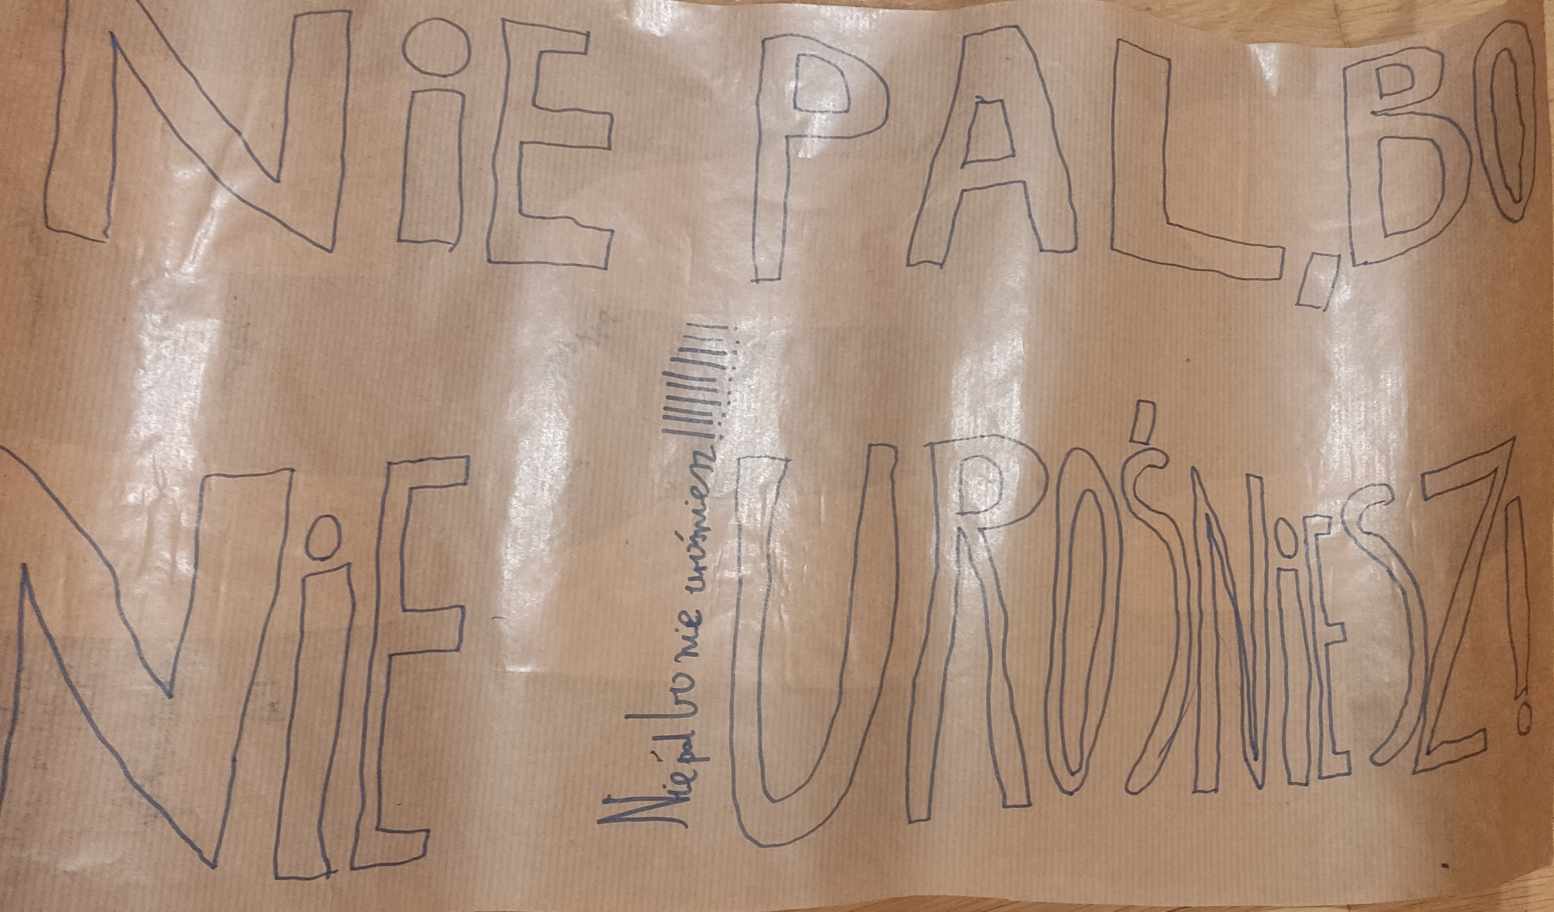 NiE PAL, BO
NiE UROŚNiESZ!
Nie pal bo nie urośniesz!!!!!!!!!!!